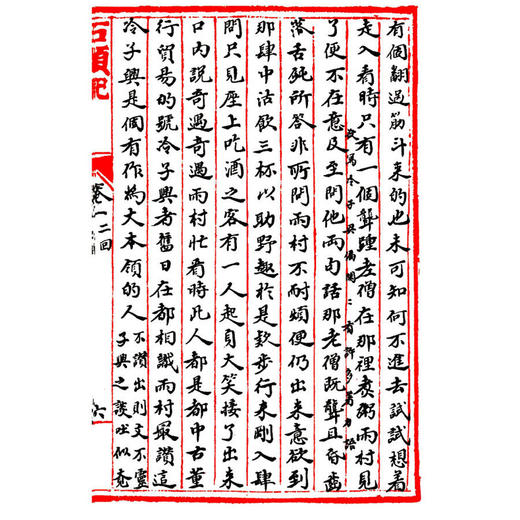 有個翻過筋斗来的也未可知何不進去試試想着
走入看時只有一個聾腫老僧在那裡煮粥雨村見
欲寫冷子興偏閑二有許多着力語
了便不在意及至問他両句話那老僧既聾且昏齒
落舌鈍所答非所問雨村不耐煩便仍出来意欲到
那肆中沽飲三杯以助野趣於是欵步行来剛入肆
問只見座上吃酒之客有一人起身大笑接了出来
口内説奇遇奇遇雨村忙看時此人都是都中古董
行貿易的號冷子興者舊日在都相識雨村最讚這
冷子興是個有作為大本領的人
不讚出則文不靈
子興之談吐似亮
石頭記
卷一
二回
六